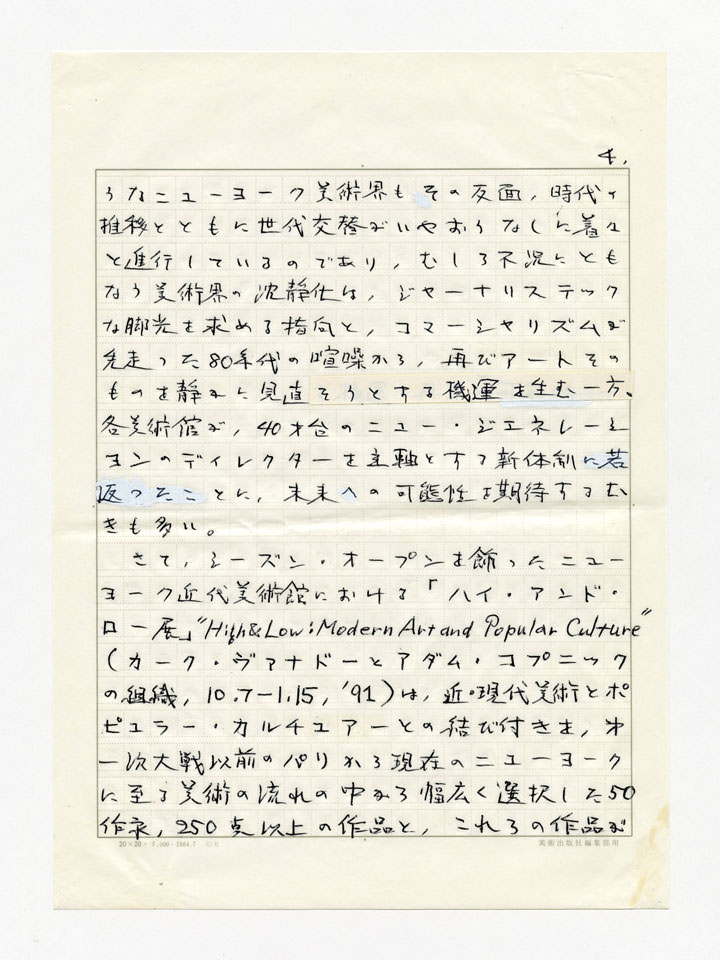 4.
うなニューヨーク美術界もその反面，時代の
推移とともに世代交替がいやおうなしに着々
と進行しているのであり，むしろ不況にとも
なう美術界の沈静化は，ジャーナリスティック
な脚光を求める指向と，コマーシャリズムが
先走った80年代の喧噪から，再びアートその
ものを静かに見直そうとする機運を生む一方、
各美術館が，40才台のニュー・ジェネレーシ
ョンのディレクターを主軸とする新体制に若
返ったことに，未来への可能性を期待するむ
きも多い。
さて，シーズン・オープンを飾ったニュー
ヨーク近代美術館における「ハイ・アンド・
ロー展」"High & Low : Modern Art and Popular Culture"
（カーク・ヴァナドーとアダム・コプニック
の組織，10.7－1.15，'91）は，近・現代美術とポ
ピュラー・カルチュアーとの結び付きを，第
一次大戦以前のパリから現在のニューヨーク
に至る美術の流れの中から幅広く選択した50
作家，250点以上の作品と，これらの作品が
20×20 1984.7
美術出版社編集部用